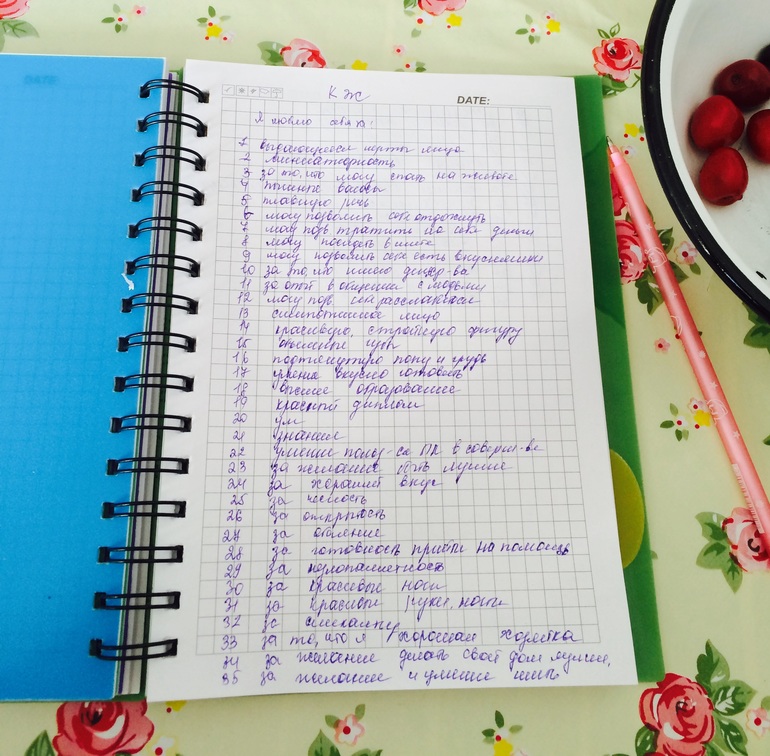 DATE:
К Ж
DATE:
Я люблю себя за:
1 выдающиеся черты лица
2 миниатюрность
3 за то, что могу спать на животе
4 волосы
5 плавную речь
6 могу позволить себе отдохнуть
7 могу позв тратить на себя деньги
8 могу посидеть в
9 могу позволить себе есть вкусняшки
10 за то, что имею
11 за опыт в общении с людьми
12 могу позв расслабиться
13 симпатичное лицо
14 красивую, стройную фигуру
15 губы
16 подтянутую попу и грудь
17 умение вкусно готовить
18 высшее образование
19 красный диплом
20 ум
21 знания
22 умение польз-ся ПК в соверш-ве
23 за желание быть лучше
24 за хороший вкус
25 за честность
26 за открытость
27 за
28 за готовность прийти на помощь
29 за
30 за красивые ноги
31 за красивые руки, ногти
32 за смекалку
33 за то, что я хорошая хозяйка
34 за желание делать свой дом лучше,
35 за желание и умение шить